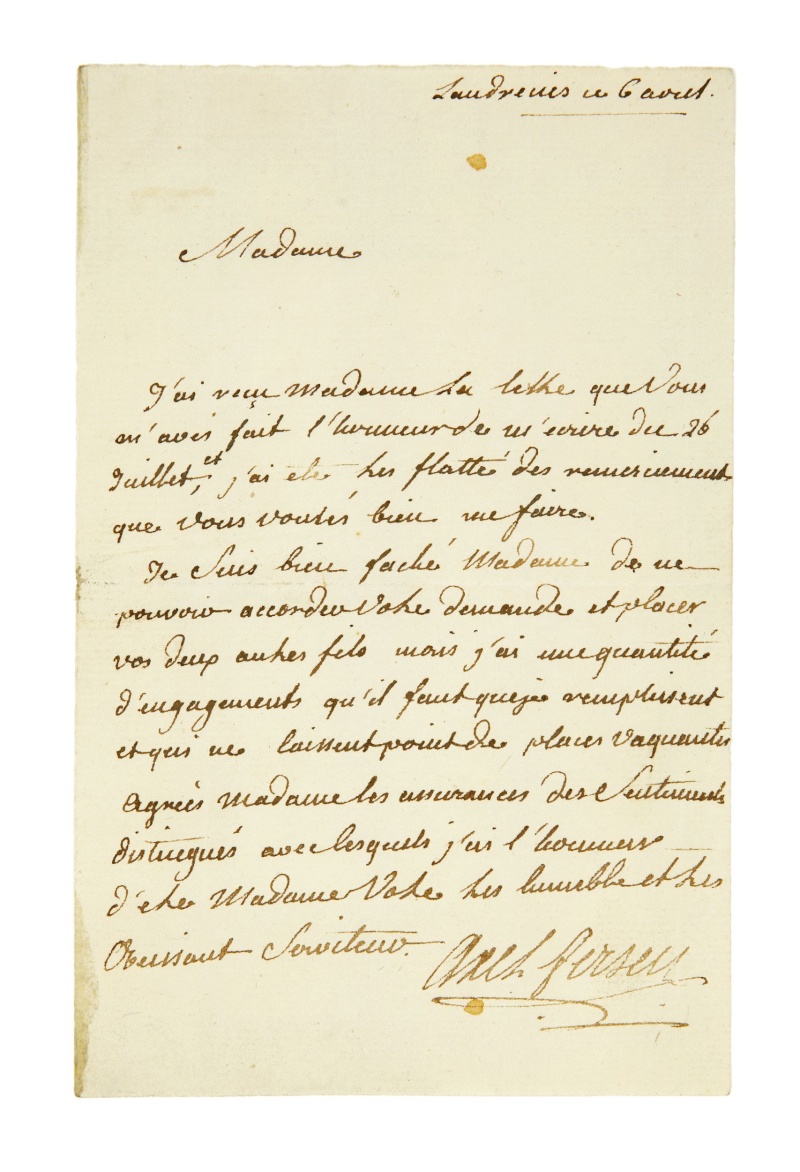 Landrecies ce 6 aout.
Madame
J'ai reçu Madame La lettre que Vous
m'avés fait l'honneur de m'écrire du 26
Juillet, et j'ai ete tres flatté des remerciement
que vous voulés bien me faire.
Je Suis bien faché Madame de ne
pouvoir accorder Votre demande et placer
vos deux autres fils mais j'ai une quantité
d'engagements qu'il faut que je remplissent
et qui ne laissent point de places Vaquantes
Agréés Madame les assurances des Sentiments
distingués avec lesquels j'ai l'honneur
d'etre Madame Votre tres humble et tres
Obeissant Serviteur.
Axel fersen